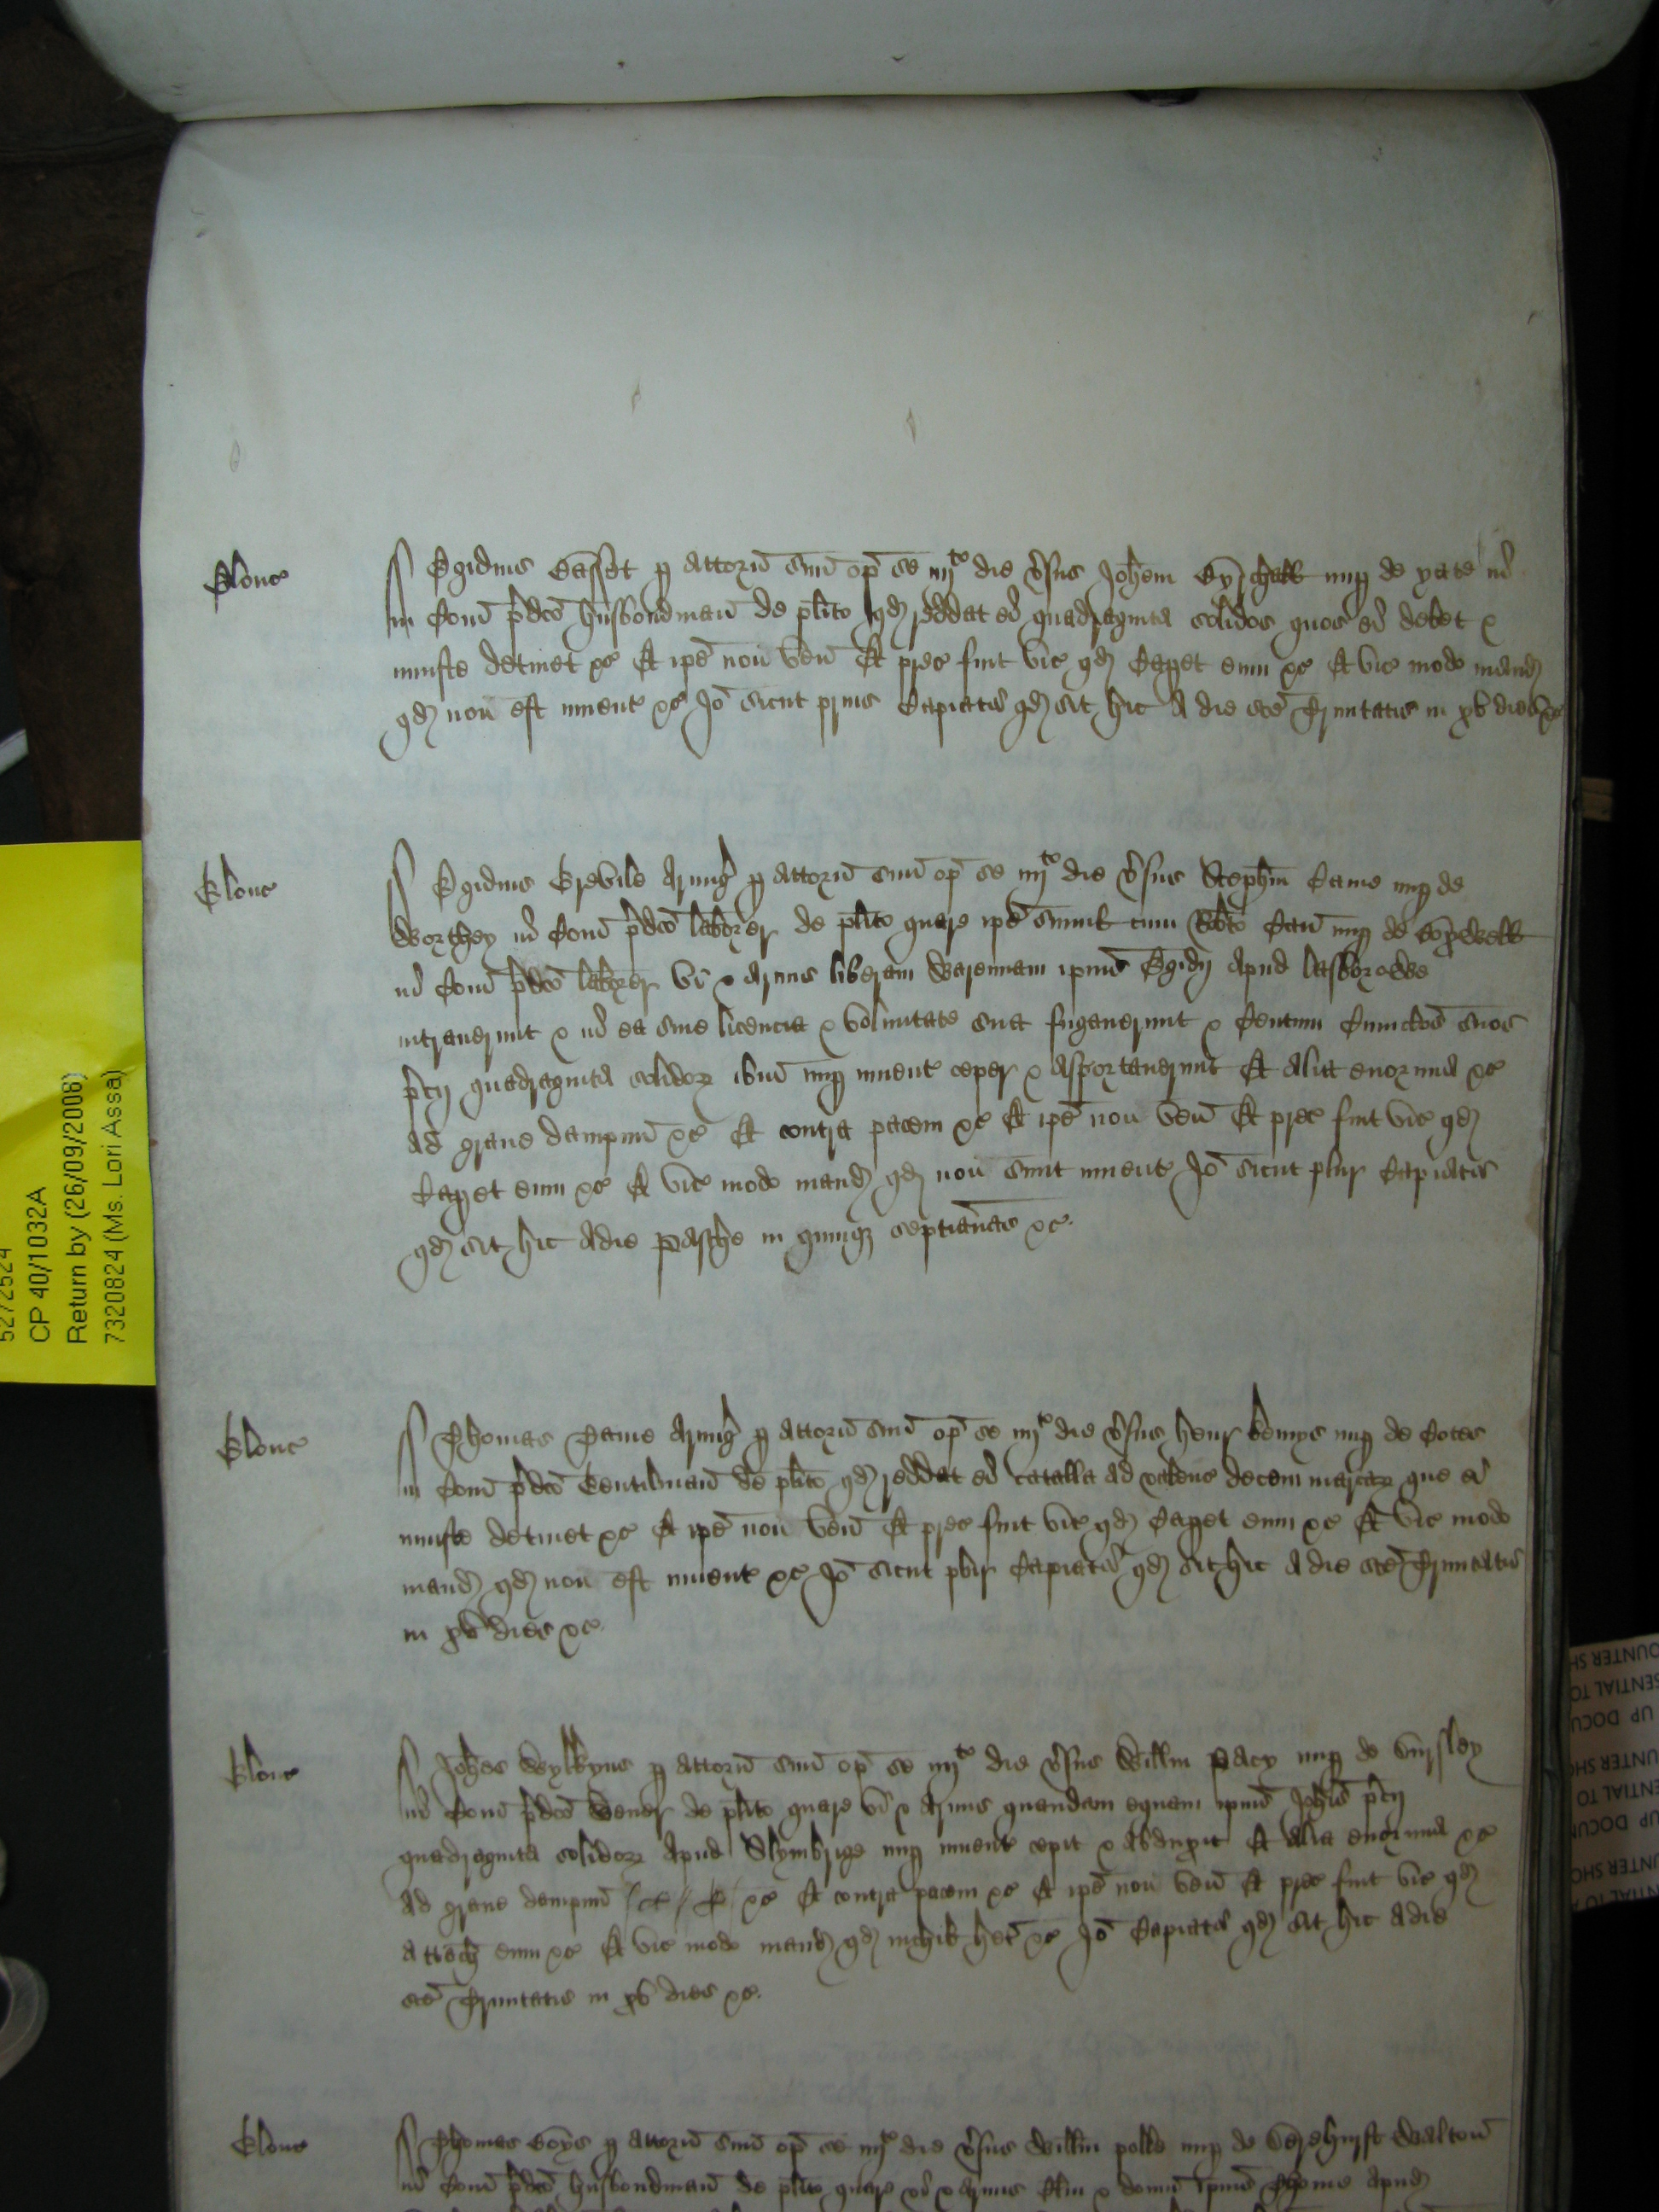 Glouc
Egidius Basset p attorn suu op se iiijto die vsus Johem nup de yate in
in Com pdco husbondman de plito qd reddat ei quadraginta solidos quos ei debet &
iniuste detinet &c Et ipe non ven Et prec fuit vic qd Capet eum &c Et vic modo mand
qd non est inuent &c Io sicut prius Capiatr qd sit hic a die sce Trinitatis in xv dies &c
Glouc
Egidius Grevile Armig p attorn suu op se iiijto die vsus Stephm Came nup de
Worthey in Com pdco laborer de plito quare ipe simul cum Robto nup de
in Com pdco laborer vi & armis liberam Warennam ipius Egidij apud Lasborowe
intrauerunt & in ea sine licencia & voluntate sua fugauerunt & Centum Cuniclos suos
pcij quadraginta solidor ibm nup inuent ceper & asportauerunt Et alia enormia &c
ad graue dampnu &c Et contra pacem &c Et ipe non ven Et prec fuit vic qd
Capet eum &c Et vic modo mand qd non sunt inuent Io sicut plur Capiatr
qd sit hic a die Pasche in quinq septianas &c
Glouc
Thomas Payne Armig p attorn suu op se iiijto die vsus Henr Kemys nup de Cotes
in Com pdco Gentilman de plito qd reddat ei catalla ad valenc decem marcar que ei
iniuste detinet &c Et ipe non ven Et prec fuit vic qd Capet eum &c Et vic modo
mand qd non est inuent &c Io sicut plur Capiatr qd sit hic a die sce Trinitatis
in xv dies &c
Glouc
Johes Wylkyns p attorn suu op se iiijto die vsus Willm Pacy nup de
in Com pdco Wever de plito quare vi & armis quandam equam ipius Johis pcij
quadraginta solidor apud Slymbrige nup inuent cepit & abduxit Et alia enormia &c
ad graue dampnu &c Et contra pacem &c Et ipe non ven Et prec fuit vic qd
attach eum &c Et vic modo mand qd nichil het &c Io Capiatr qd sit hic a die
sce Trinitatis in xv dies &c
Glouc
Thomas p attorn suu op se iiijto die vsus Willm nup de Walton
in Com pdco husbondman de plito quare vi & armis Clm & domu ipius Thome apud
5272524
CP 40/1032A
Return by (26/09/2008)
7320824 (Ms. Lori Assa)